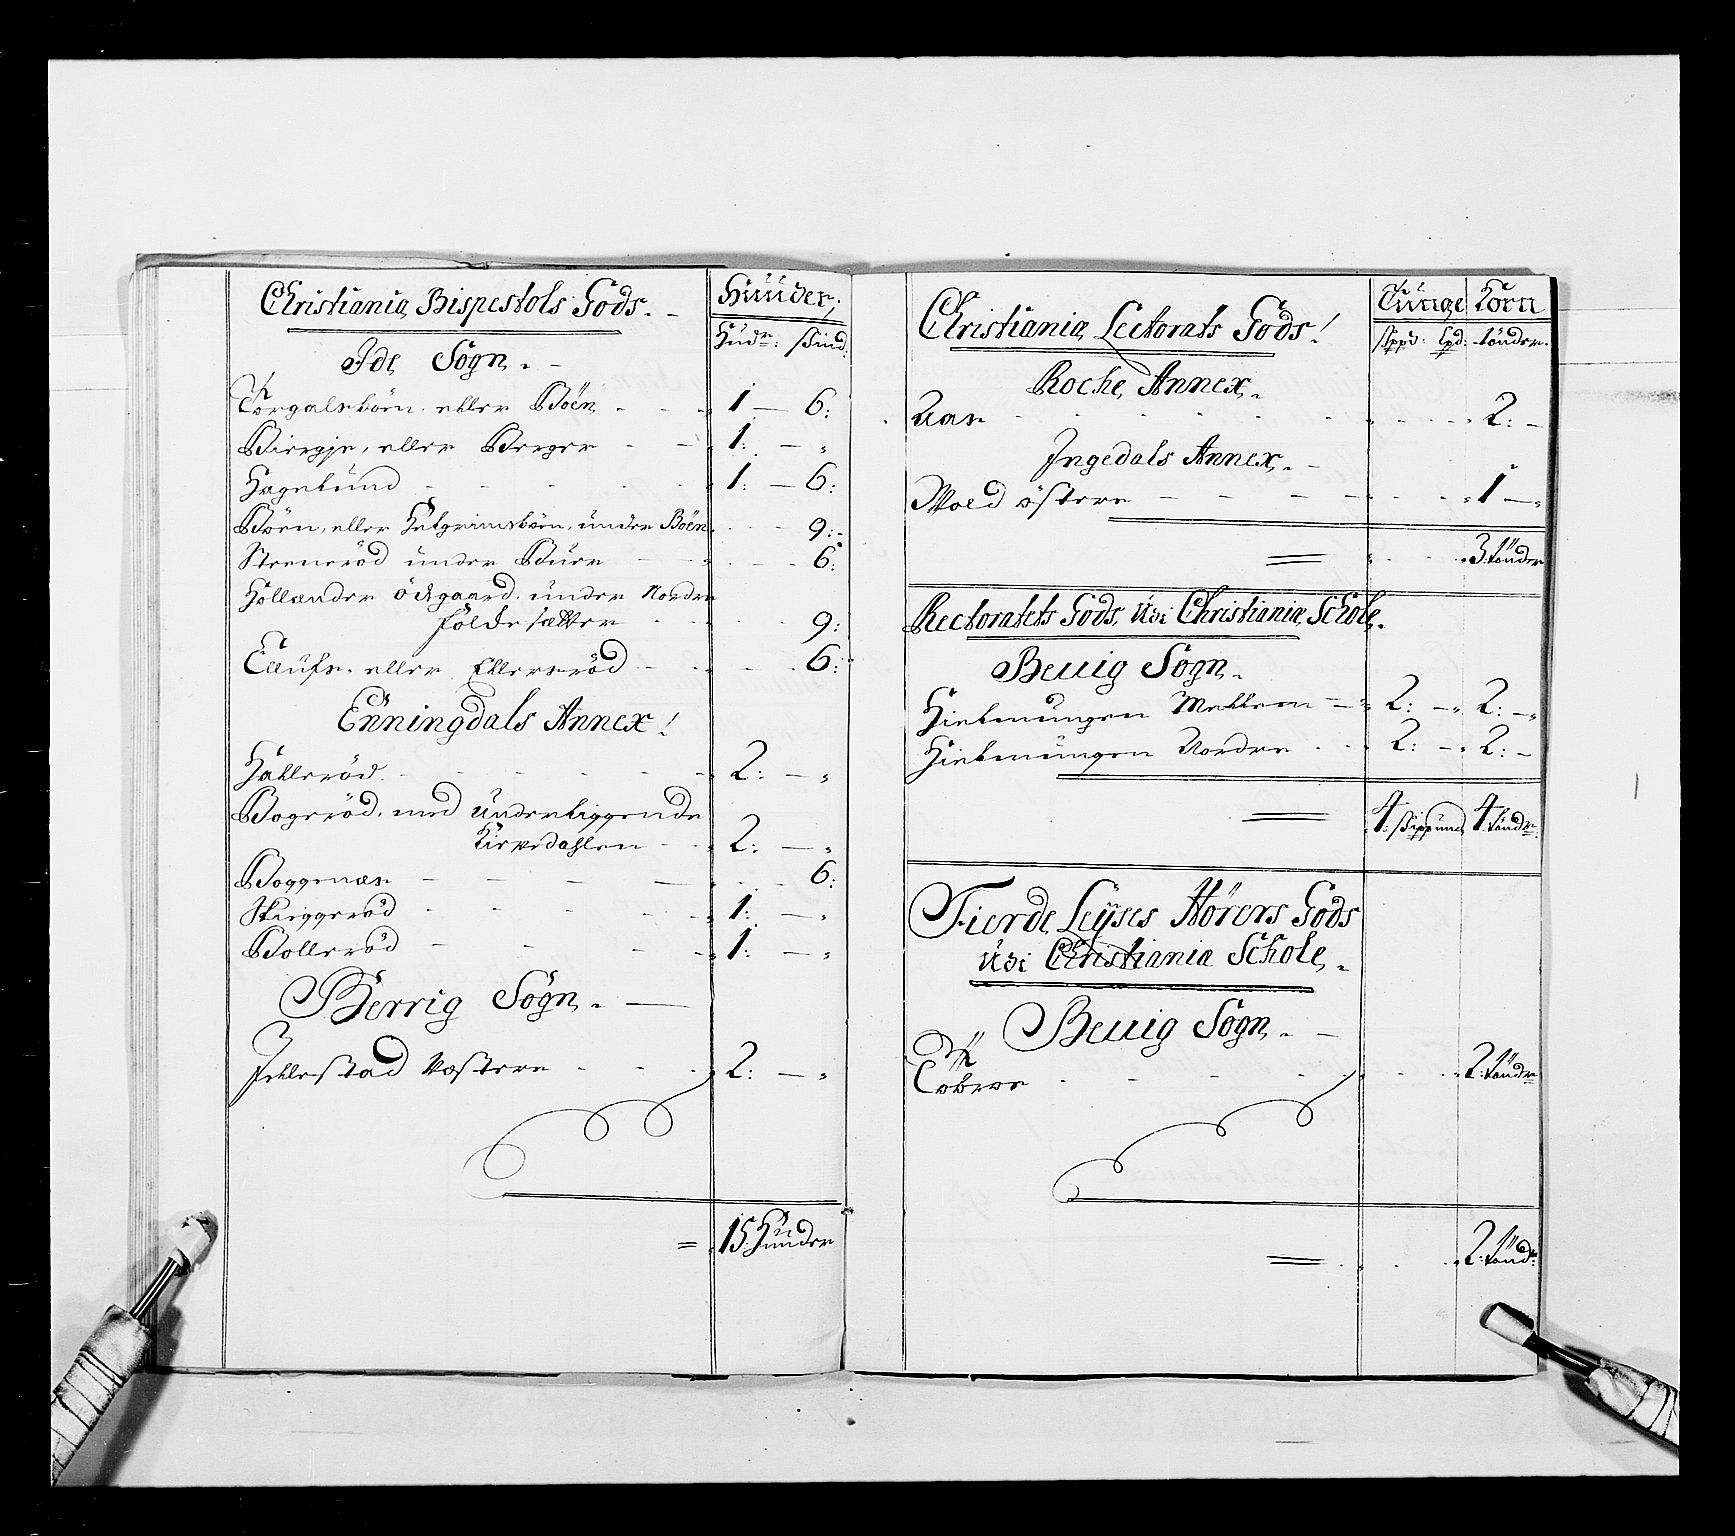 Christiania Bispestols Gods. -
Huuder,
Hud: skind:
Ide Sogn. -
Torgalsböen, eller Böen - - - 1 - 6:
Biergje, eller Berger - - 1: - "
Hagelund - - - - 1: - 6:
Böen, eller Helgrimsböen, under Böen - - 9:-
Steneröd under Buer - - - 6:
Hollender ödegaard, under Nordre
Foldesætter - - - 9:
Ellufs, eller Ellersröd - - - 6:
Enningdals Annex!
Halleröd - - - - - 2: - "
Bogeröd, med underliggende
Kirkedahlen - - 2: - "
Boggenæs - - - - - 6:
Skiggeröd - - - - 1: - "
Bolleröd - - - - 1: - "
Berrig Sogn. -
Jellestad Vestere - - - 2: - "
= 15 Huuder
Christiania Lectorats Gods!
Tunge Korn
skppd: Lpd: tönder.
Rocke Annex.
Aas - - - - 2: -
Ingedals Annex. -
Moed östere - - - - 1 - "
= 3: tönder
Rectoratets Gods, Udi Christiania Schole.
Beuig Sogn.
Hielmungen Mellem = 2: - " 2: - "
Hielmungen Nordre - - 2: - " 2: -
= 4: skippund 4: tönder
Fierde Leyses Hörers Gods
Udi Christiania Schole. -
Beuig Sogn. -
- - - - 2: tönder
= 2: tönd: